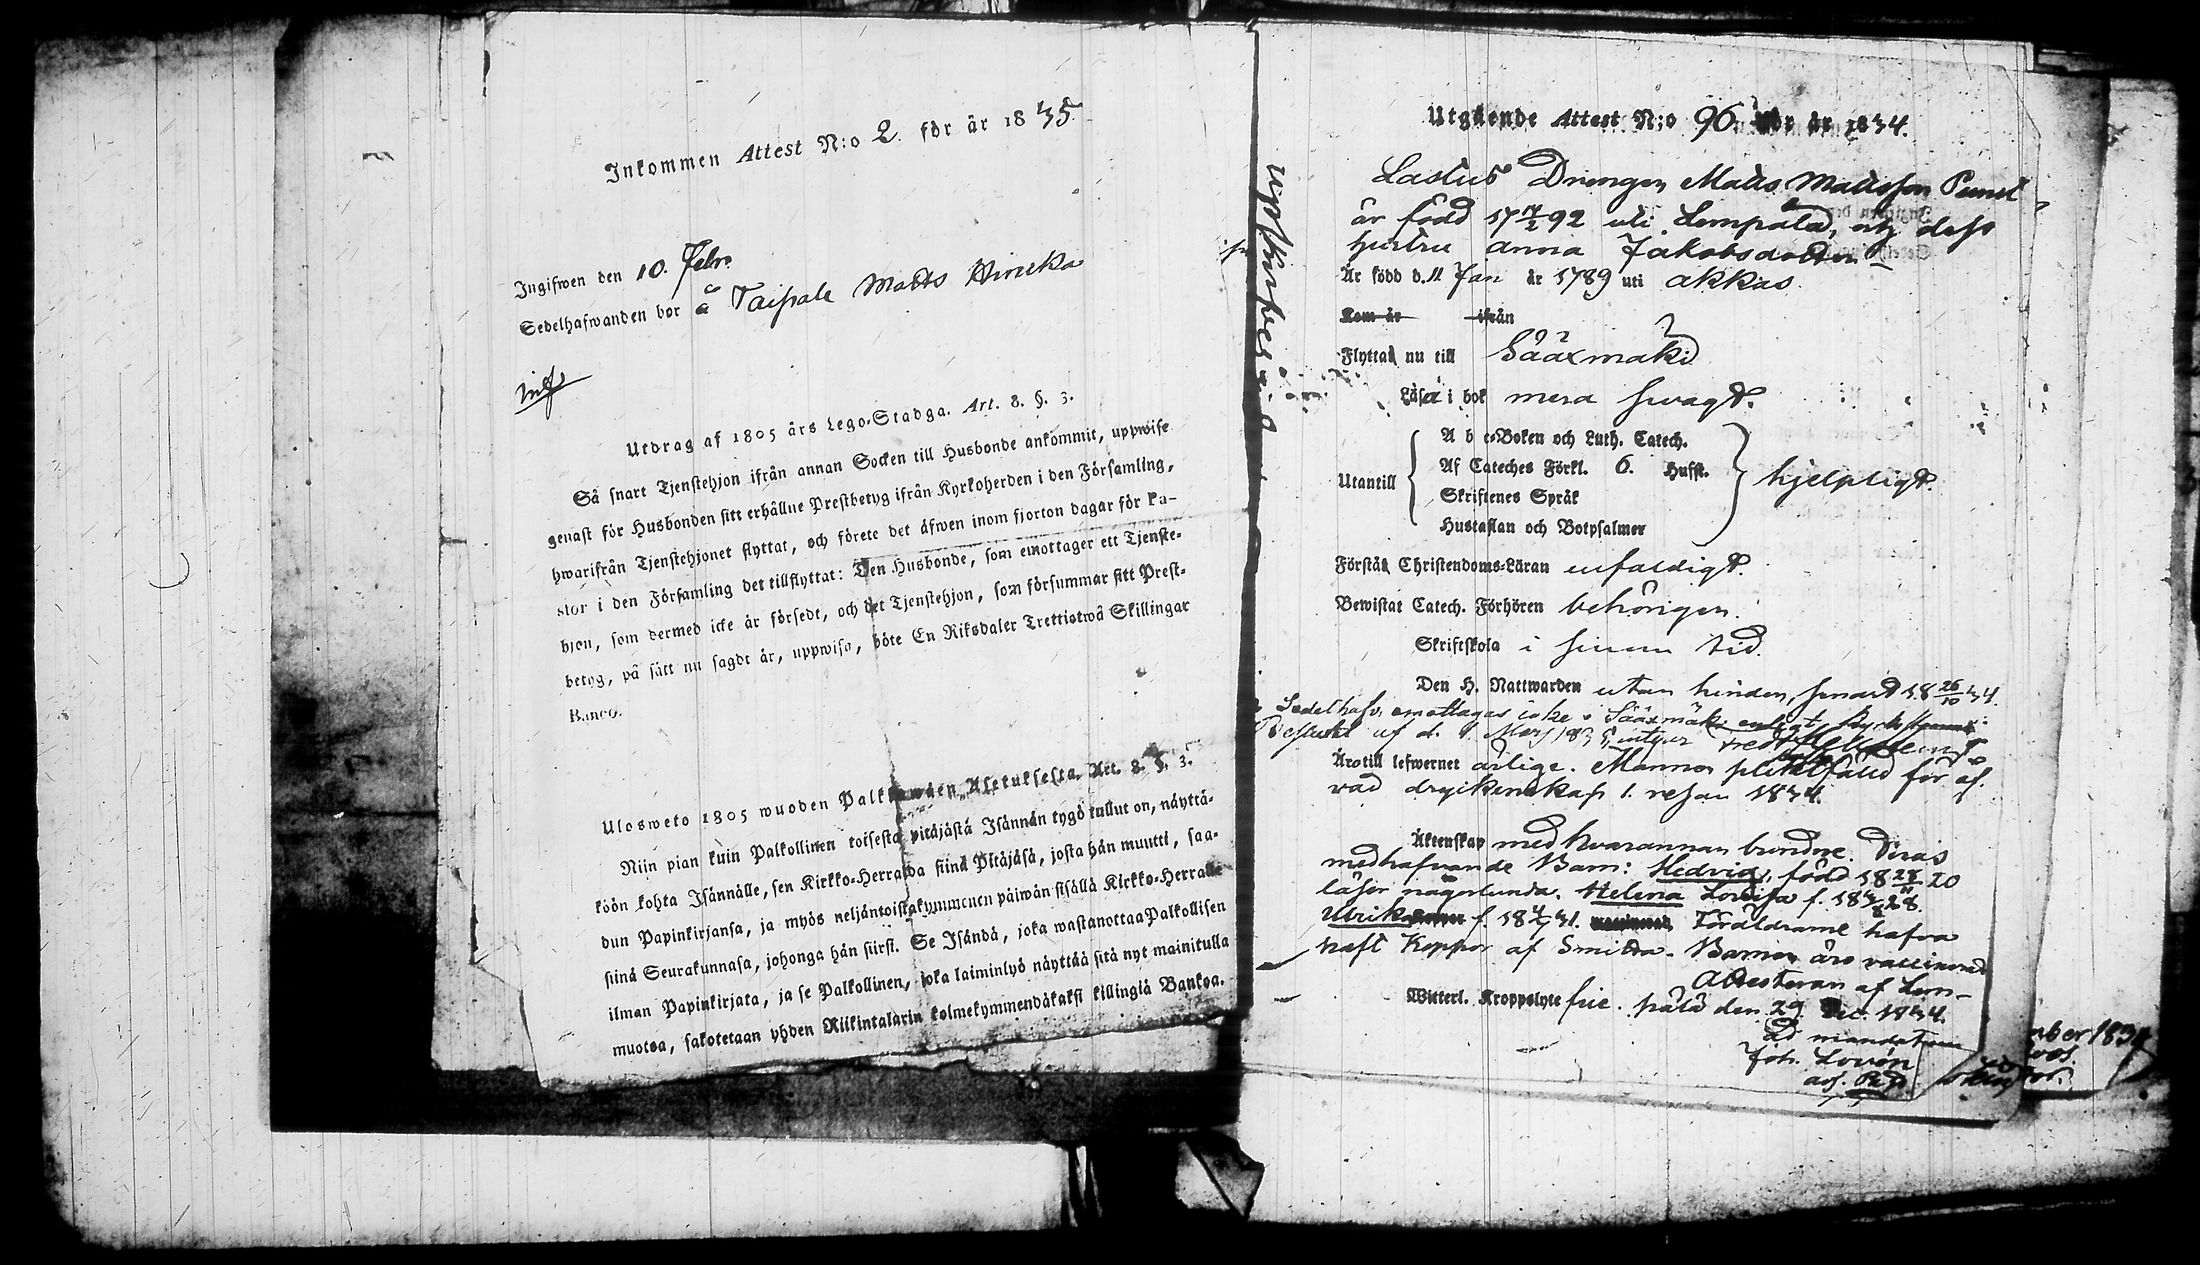 Inkommen Attest N:o 2. för år 1835
Ingifwen den 10. Febr.
Sedelhafwanden bor å Taipale Matts Hinuka
Utdrag af 1805 års Lego-Stadga. Art. 8. §. 3.
Så snart Tjenstehjon ifrån annan Socken till Husbonde ankommit, uppwise
genast för Husbonden sitt erhållne Prestbetyg ifrån Kyrkoherden i den Församling,
hwarifrån Tjenstehjonet flyttat, och förete det äfwen inom fjorton dagar för Pa-
stor i den Församling det tillflyttat: Den Husbonde, som emottager ett Tjenste-
hjon, som dermed icke är försedt, och det Tjenstehjon, som försummar sitt Prest-
betyg, på sätt nu sagdt är, uppwisa, böte En Riksdaler Trettiotwå Skillingar
Banco.
Ulosweto 1805 wuoden Palkkawäen Asetuksesta. Art. 8. §. 3.
Niin pian kuin Palkollinen toisesta pitäjästä Isännän tygö tullut on, näyttä-
köön kohta Isännälle, sen Kirkko-Herralda siinä Pitäjäsä, josta hän muutti, saa-
dun Papinkirjansa, ja myös neljäntoistakymmenen päiwän sisällä Kirkko-Herralle
siinä Seurakunnasa, johonga hän siirsi. Se Isändä, joka wastanottaa Palkollisen
ilman Papinkirjata, ja se Palkollinen, joka laiminlyö näyttää sitä nyt mainitulla
muotoa, sakotetaan yhden Riikintalarin kolmekymmendäkaksi killingiä Bankoa.
Utgående Attest N:o 96 för år 1834.
Drengen Matts Mattsson
är född 17 17/2 92 uti Lempälä, och dess
hustru Anna Jakobsdotter
Är född d. 11 Jan år 1789 uti Akkas
Kom år ifrån
Flyttat nu till Sääxmäki
Läsa i bok mera swagt.
A b c-Boken och Luth. Catech.
Af Cateches Förkl. 6. Hufst.
Utantill hjelpligt.
Skriftenes Språk
Hustaflan och Botpsalmer
Förstå Christendoms-Läran enfaldigt.
Bewistat Catech. Förhören behörigen.
Skriftskola i sinom tid.
Den H. Nattwarden utan hinder, senast 18 26/10 34.
Sedelhafv. emottages icke i Sääxmäki enligt
af d. 1 Mars 1835, intygar
Äro till lefwernet ärlige. Mannen pliktfälld för öf.
vad dryckenskap 1. resan 1834.
Äktenskap med hvarannan bundne. Deras
medhafvande Barn: Hedvig, född 18 28/8 20
läser någorlunda. Helena Lovisa f.
Ulrika f. Föräldrarne hafva
haft Koppor af Smitta. Barnen äro vaccinerade
Attesteran af Lem-
Witterl. Kroppslyte frie. pälä den 29 Dec. 1834.
ad mandatum
Joh. Lovén
adj. Past.
mber 1834